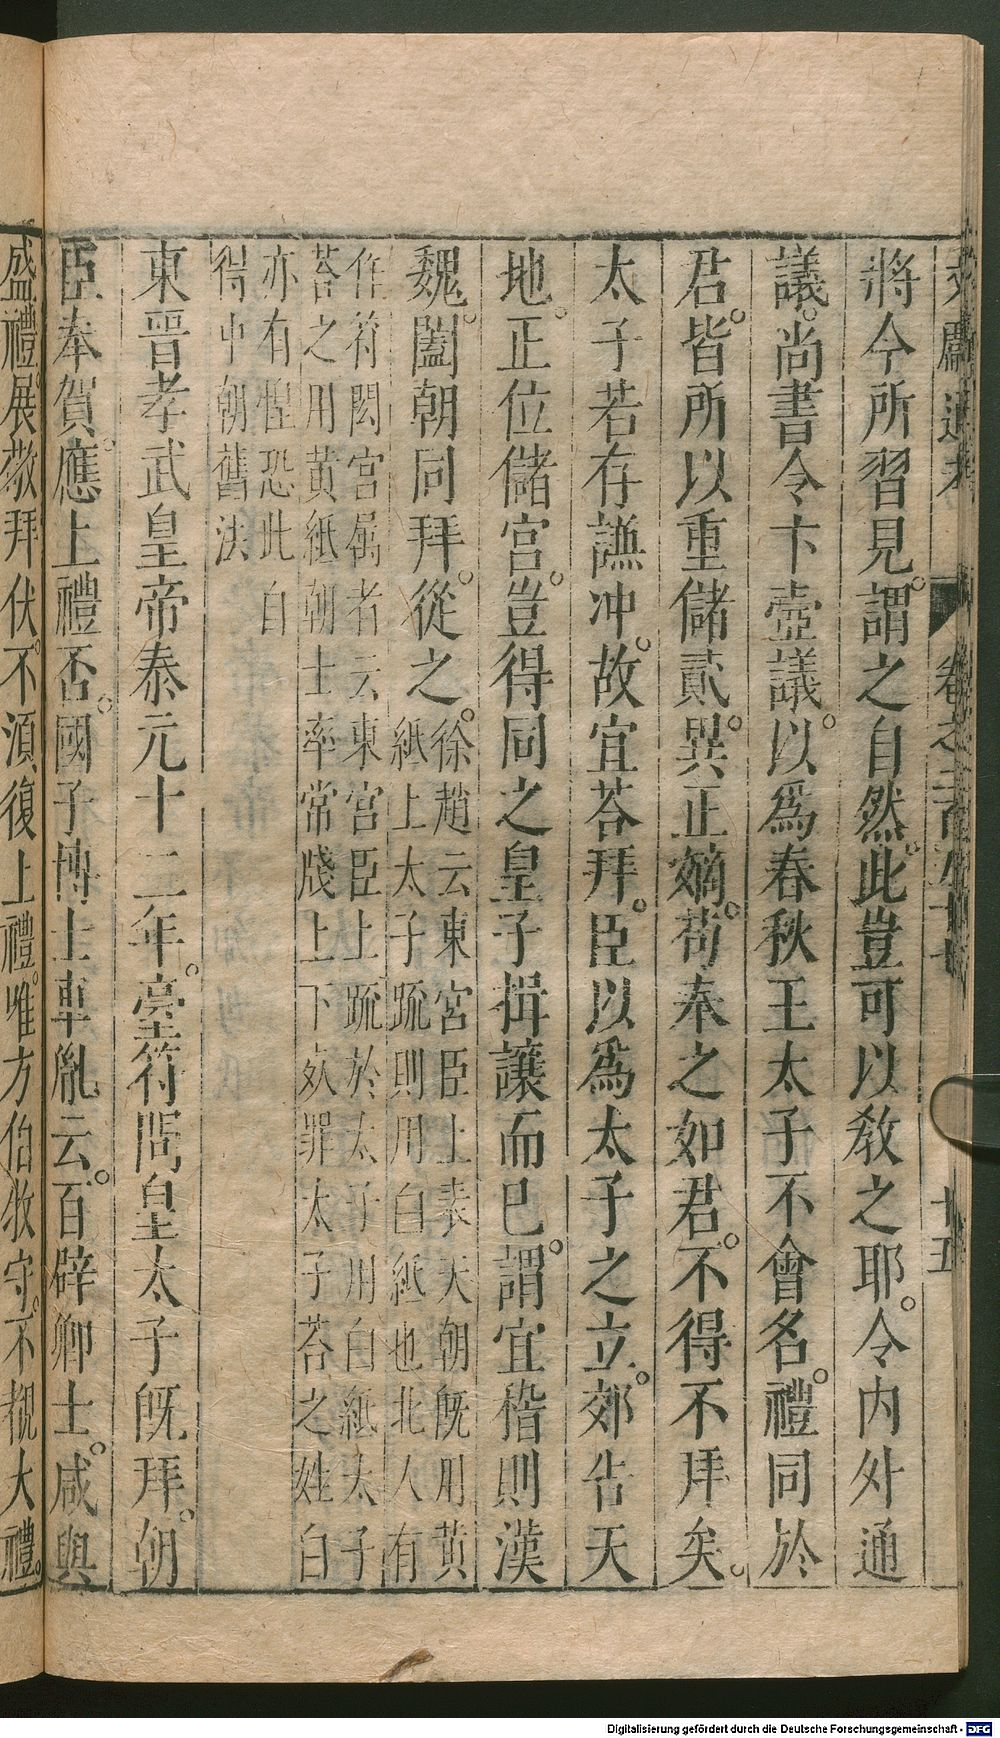 將今所習見謂之自然此豈可以教之耶令內外通
議尚書令卞壼議以為春秋王太子不會名禮同於
君皆所以重儲貳異正嫡苟奉之如君不得不拜矣
太子若存謙冲故宜荅拜臣以為太子之立郊告天
地正位儲宮豈得同之皇子揖讓而已謂宜稽則漢
魏闔朝同拜從之
徐趙云東宮臣上表天朝旣用黄
紙上太子䟽則用白紙也北人有
作符閎宮屬者云東宮臣上䟽於太子用白紙太子
荅之用黄紙朝士率常牋上下死罪太子荅之姓白
亦有惶恐此自
得中朝舊法
東晉孝武皇帝泰元十二年臺符問皇太子旣拜朝
臣奉賀應上禮否國子博士車胤云百辟卿士咸與
盛禮展敬拜伏不湏復上禮唯方伯牧守不覩大禮
卷之
十五
Digitalisierung gefördert durch die Deutsche Forschungsgemeinschaft - DFG